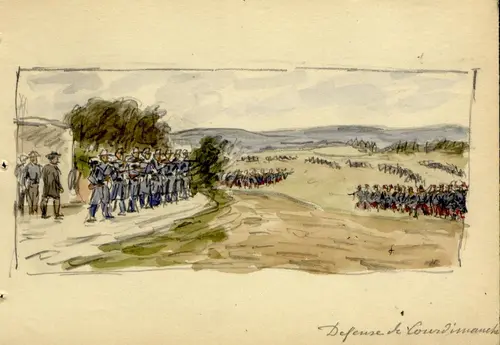 Defense de Courdimanche